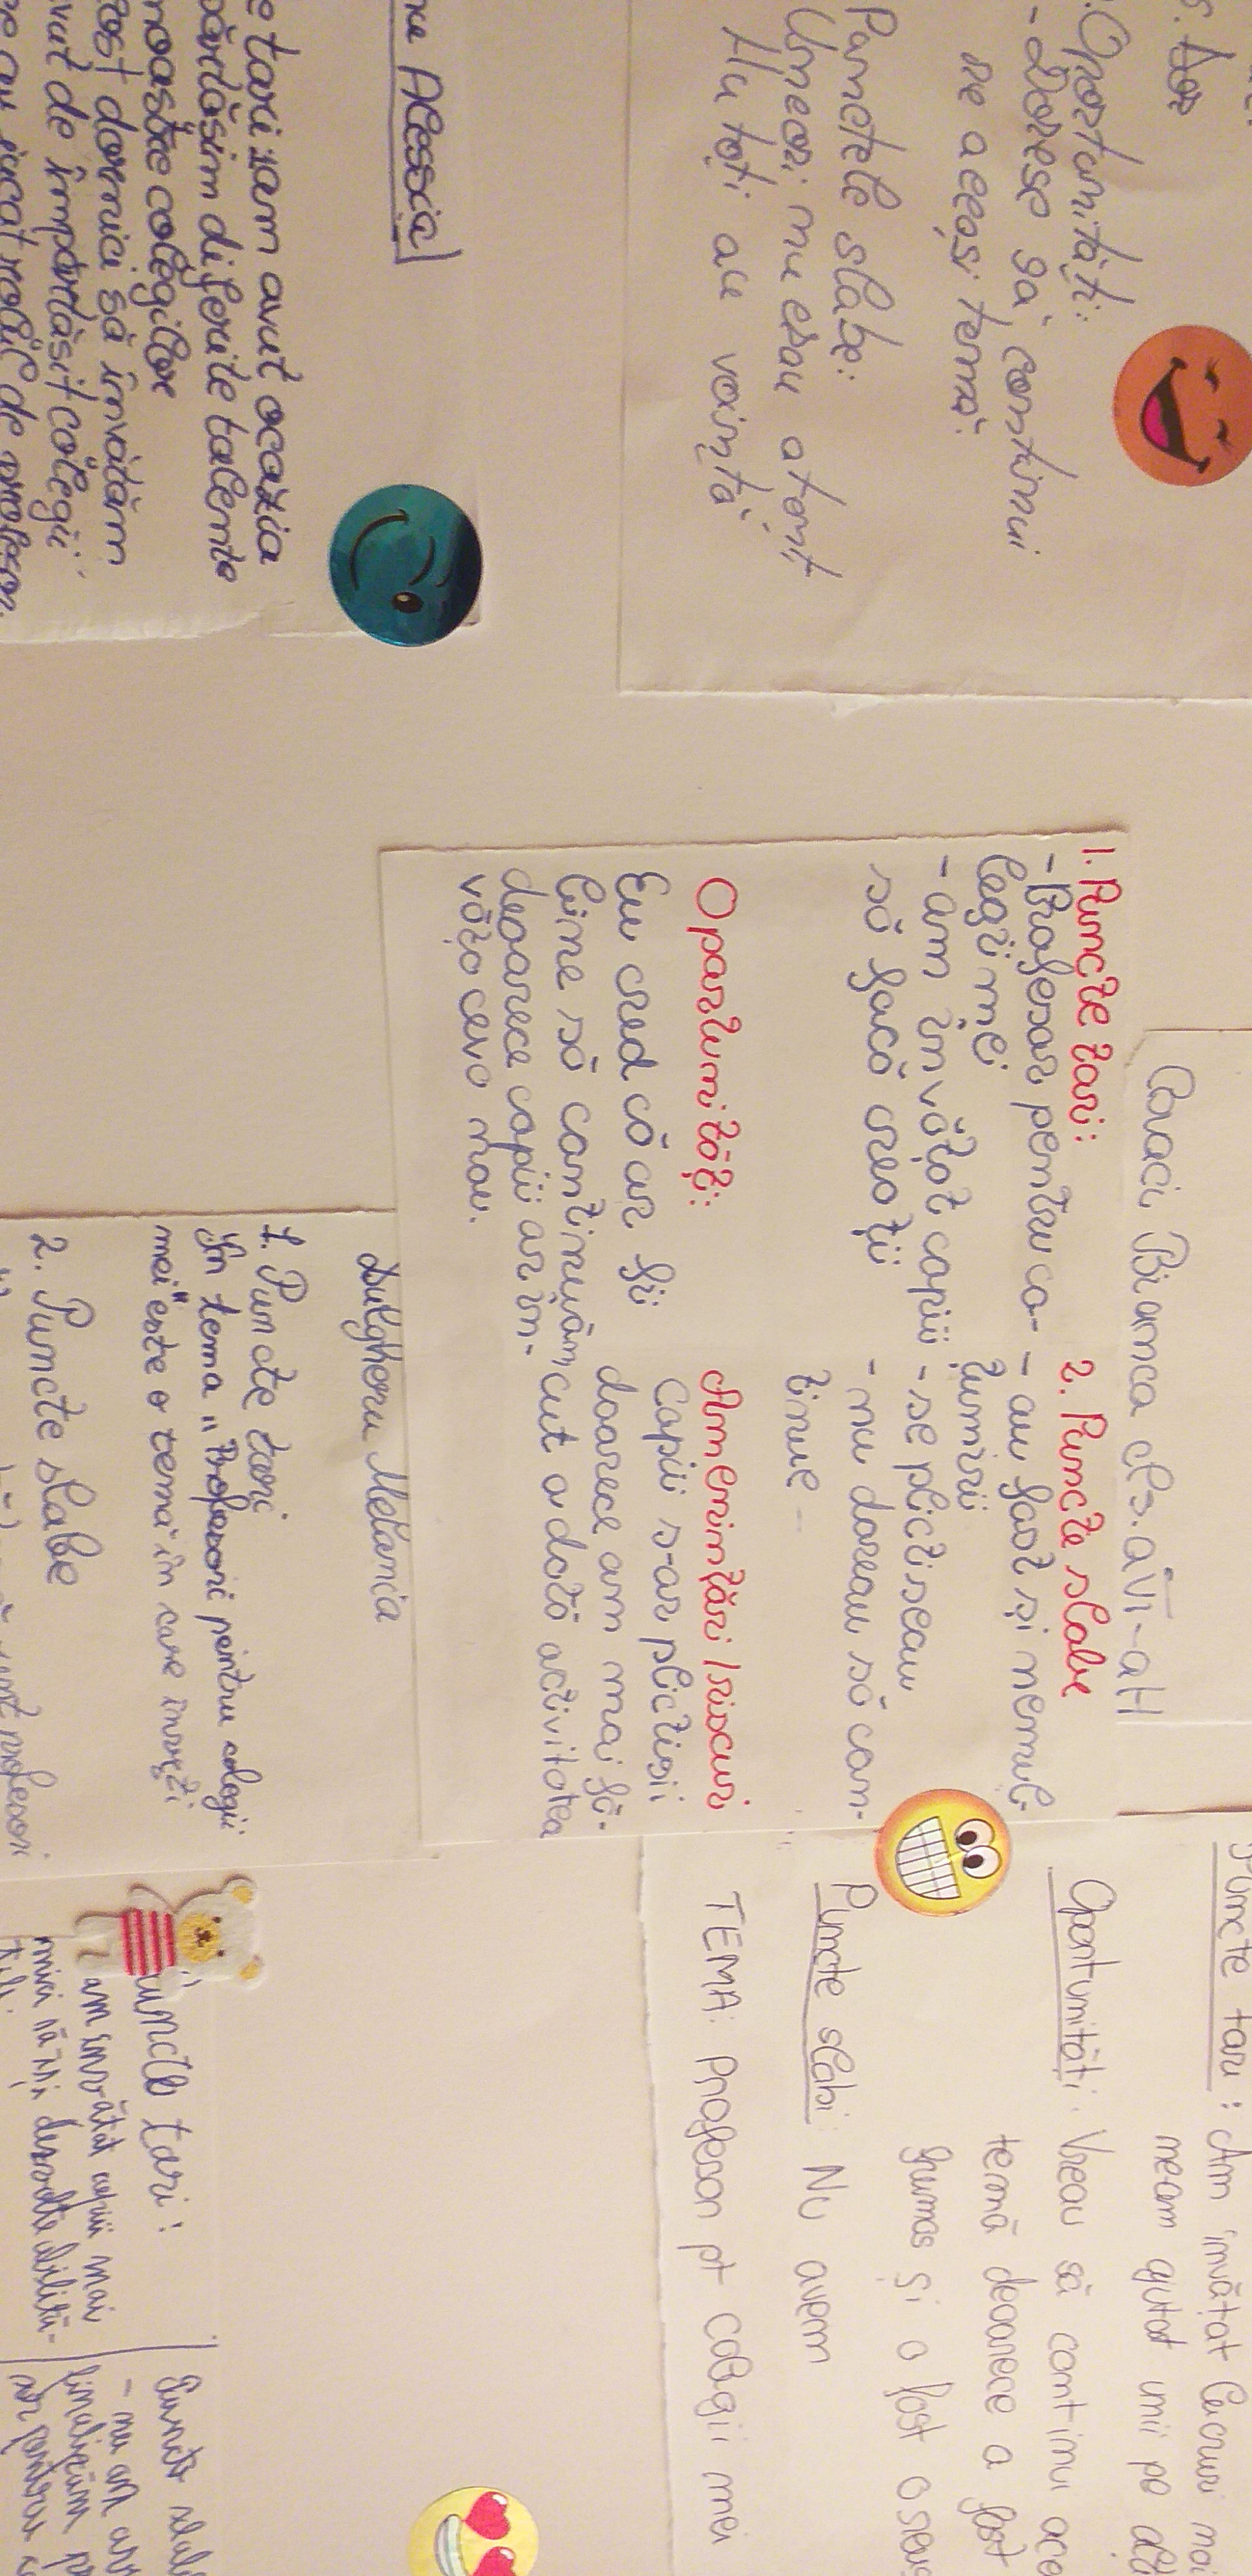 Oportunități:
-Doresc să continui
pe aceași temă.
Punctele slabe:
Uneori nu erau atent
Nu toți au voință
Alessia
e tari: am avut ocazia
părtășim diferite talente
noastre colegilor
fost dornici să învățăm
vut de împărtășit colegii
au jucat rolul de profesor
Covaci Bianca cls. a VI-a H
1. Puncte tari:
-Profesor pentru co-
legii mei
-am învățat copiii
să facă creații
2. Puncte slabe
- au fost și nemul-
țumirii
-se plictiseau
-nu doreau să con-
tinue
Oportunități:
Eu cred că ar fi
bine să continuăm
deoarece copiii ar în-
văța ceva nou.
Amenințări/riscuri
Copiii s-ar plictisii
doarece am mai fă-
cut o dată activitatea
Dulgheru Melania
1. Puncte tari
În tema "Profesori pentru colegii
mei" este o temă în care înveți
2. Puncte slabe
Puncte tari: Am învățat lucruri noi
neam ajutat unii pe alți
Oportunități: Vreau să continui ace
temă deoarece a fost
frumos și a fost o
Puncte slabi: Nu avem
TEMA: Profesor pt colegii mei
uncte tari:
am învățat copiii mai
mici să-și dezvolte abilită-
țile.
Puncte slab
- nu am
finalizăm